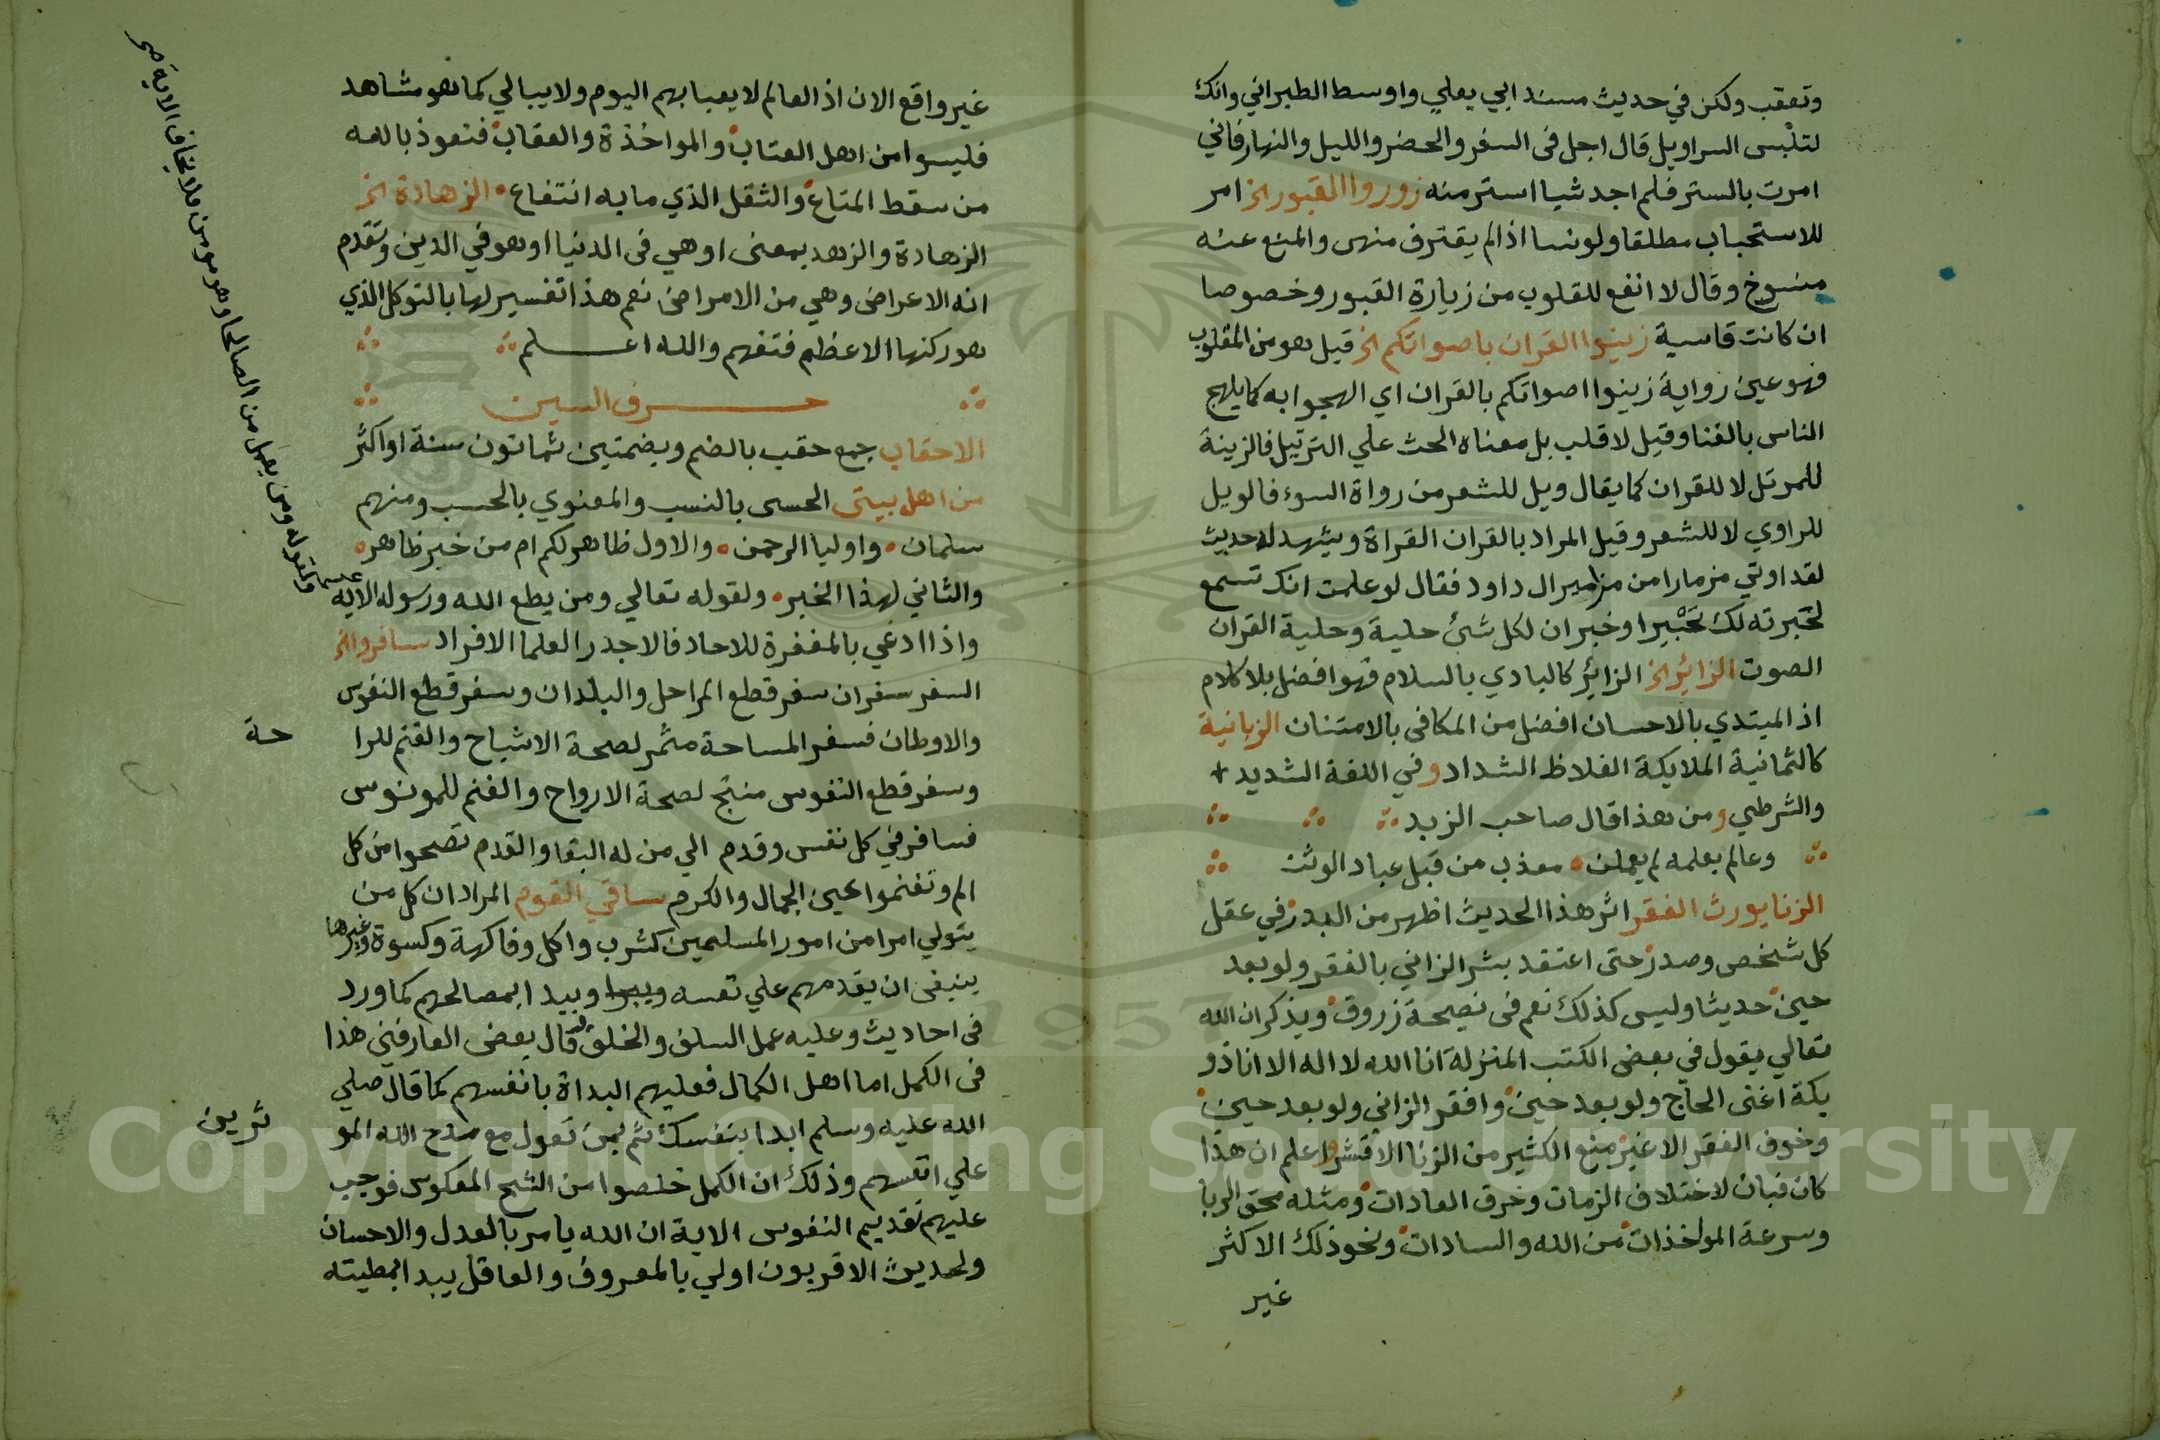 وتعقب ولكن في حديث مسند ابي يعلي واوسط الطبراني وانك
لتلبس السراويل قال اجل في السفر والحضر والليل والنهار فاني
امرت بالستر فلم اجد شيا استر منه زوروا القبور الخ امر
للاستحباب مطلقا ولو نسا اذا لم يقترف منهي والمنع عنه
منسوخ وقال لا انفع للقلوب من زيارة القبور وخصوصا
ان كانت قاسية زينوا القران باصواتكم الخ قيل هو من المقلوب
فهو عين رواية زينوا اصواتكم بالقران اي الهجوا به كما يلهج
الناس بالغنا وقيل لا قلب بل معناه الحث علي الترتيل فالزينة
للمرتل لا للقران كما يقال ويل للشعر من رواة السوء فالويل
للراوي لا للشعر وقيل المراد بالقران القراة ويشهد له حديث
لقد اوتي مزمارا من مزامير ال داود فقال لو علمت انك تسمع
لحبرته لك تحبيرا وخبر ان لكل شئ حلية وحلية القران
الصوت الزائر الخ الزائر كالبادي بالسلام فهو افضل بلا كلام
اذ المبتدي بالاحسان افضل من المكافي بالامتنان الزبانية
كالثمانية الملايكة الغلاظ الشداد وفي اللغة الشديد
والشرطي ومن هذا قال صاحب الزبد
وعالم بعلمه لم يعملن معذب من قبل عباد الوثن
الزنا يورث الفقر اثر هذا الحديث اظهر من البدر في عقل
كل شخص وصدر حتى اعتقد بشر الزاني بالفقر ولو بعد
حين حديثا وليس كذلك نعم في نصيحة زروق ويذكر ان الله
تعالي يقول في بعض الكتب المنزلة انا الله لا اله الا انا ذو
بكة اغني الحاج ولو بعد حين وافقر الزاني ولو بعد حين
وخوف الفقر الاغير منع الكثير من الزنا واعلم ان هذا
كان فبان لاختلاف الزمات وخرق العادات ومثله محق الربا
وسرعة المواخذات من الله والسادات ونحو ذلك الاكثر
غير
غير واقع الان اذ العالم لا يعبا بهم اليوم ولا يبالي كما هو مشاهد
فليسوا من اهل العتاب والمواخذة والعقاب فنعوذ بالله
من سقط المتاع والثقل الذي ما به انتفاع الزهادة الخ
الزهادة والزهد بمعنى او هي في الدنيا وهو في الدين وتقدم
انه الاعراض وهي من الامراض نعم هذا تفسير لها بالتوكل الذي
هو ركنها الاعظم فتفهم والله اعلم
حرف السين
الاحقاب جمع حقب بالضم وبضمتين ثمانون سنة او اكثر
من اهل بيتي الحسي بالنسب والمعنوي بالحسب ومنهم
سلمان واوليا الرحمن والاول ظاهر لكم ام من خبر ظاهر
والثاني لهذا الخبر ولقوله تعالي ومن يطع الله ورسوله الاية
ولقوله ومن يعمل من الصالحا وهو مومن فلا يخاف الاية صح
واذا ادعي بالمغفرة للاحاد فالاجدر العلما الافراد سافروا الخ
السفر سفران سفر قطع المراحل والبلدان وسفر قطع النفوس
والاوطان فسفر المساحة مثمر لصحة الاشباح والغنم للرا
حة
وسفر قطع النفوس منتج لصحة الارواح والغنم للمونوس
فسافر في كل نفس وقدم الي من له البقا والقدم تصحوا من كل
الم وتغنموا عين الجمال والكرم ساقي القوم المراد ان كل من
يتولي امرا من امور المسلمين كشرب واكل وفاكهة وكسوة وغيرها
ينبغي ان يقدمهم علي نفسه ويبدا بمصالحهم كما ورد
في احاديث وعليه عمل السلف والخلف قال بعض العارفين هذا
في الكمل اما اهل الكمال فعليهم البداة بانفسهم كما قال صلي
الله عليه وسلم ابدا بنفسك ثم بمن تعول مع مدح الله المو
ثرين
علي انفسهم وذلك ان الكمل خلصوا من الشح المعكوس فوجب
عليهم تقديم النفوس الاية ان الله يامر بالعدل والاحسان
ولحديث الاقربون اولي بالمعروف والعاقل يبدا بمطيته
Copyright © King Saud University
1957